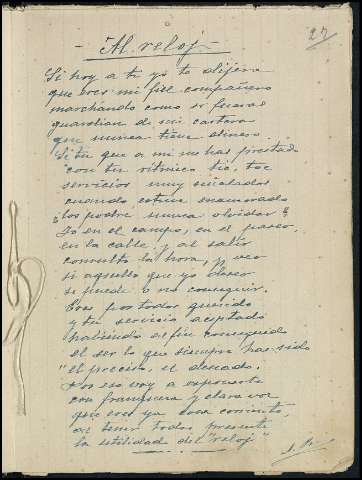 27
- "Al reloj" -
Si hoy a ti yo te dijera
que eres mi fiel compañero
marchando como si fueras
guardian de mi cartera
que nunca tiene dinero.
Si tu que a mi me has prestado
con tu ritmico tic, tac
servicios muy señalados
cuando estuve enamorado
¡los podré nunca olvidar!
Yo en el campo, en el paseo,
en la calle, y al salir
consulto la hora, y veo
si aquello que yo deseo
se puede o no conseguir.
Eres por todos querido
y tu servicio aceptado
habiendo al fin conseguido
el ser lo que siempre has sido
"el preciso, el deseado.
Por eso voy a exponerte
con franqueza y clara voz
que eres ya cosa corriente,
al tener todos presente
la utilidad del "reloj"